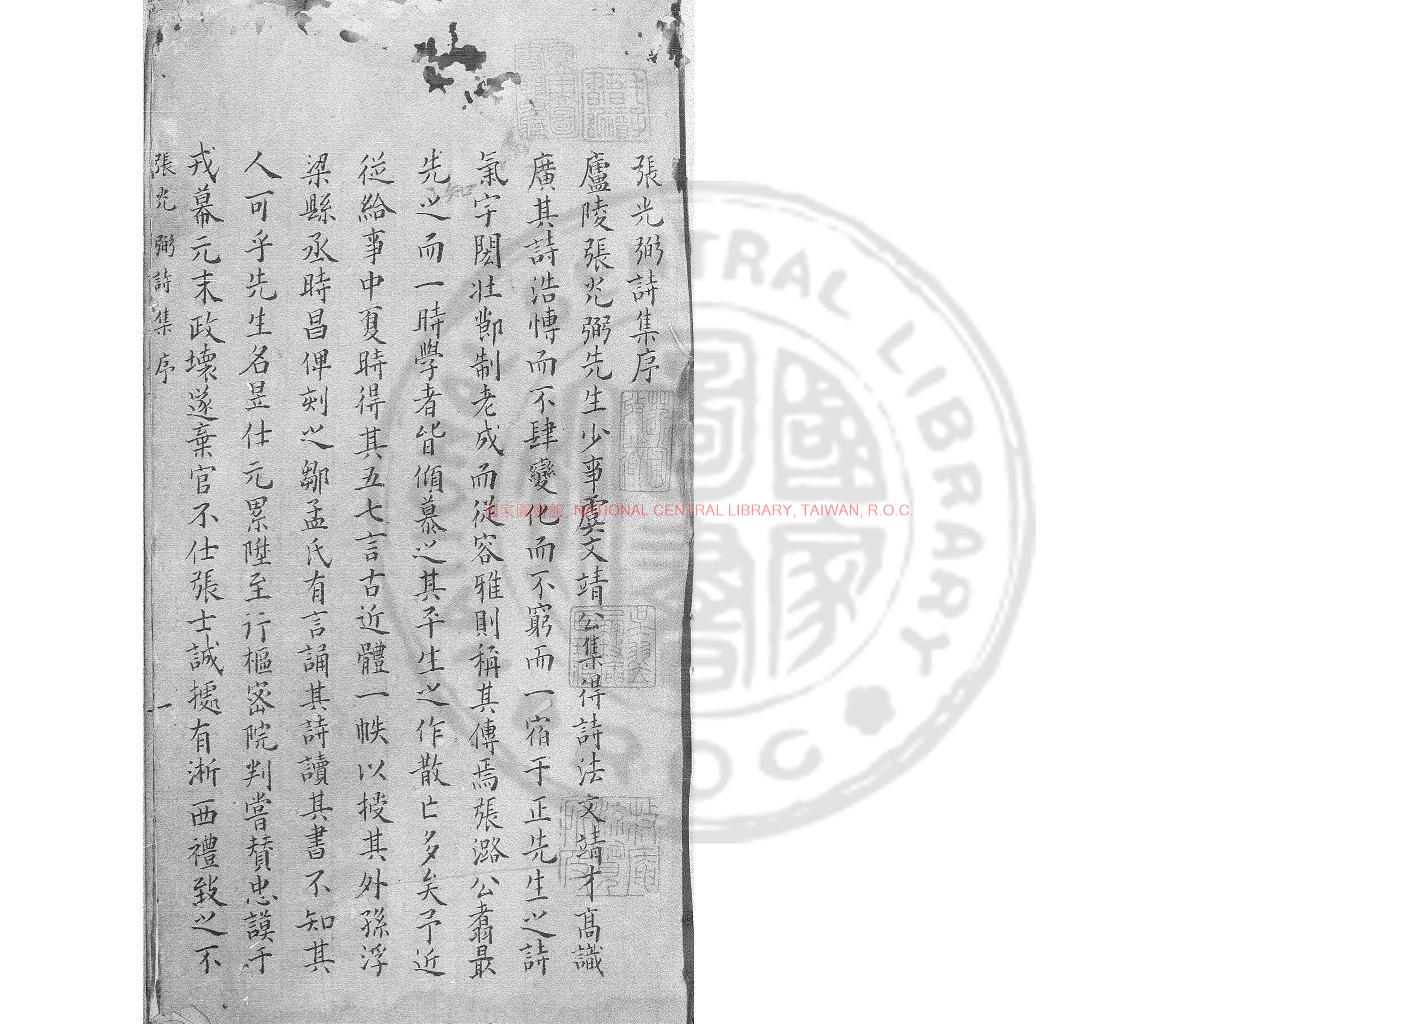 張光弼詩集序
廬陵張光弼先生少事虞文靖公集得詩法文靖才高識
廣其詩浩愽而不肆變化而不窮而一宿于正先生之詩
氣宇閎壯鄷制老成而從容雅則稱其傳焉張潞公翥最
先之而一時學者皆傾慕之其平生之作散亡多矣予近
從給事中夏時得其五七言古近體一帙以授其外孫浮
梁縣丞時昌俾刻之鄒孟氏有言誦其詩讀其書不知其
人可乎先生名昱仕元累陞至行樞密院判嘗賛忠謨于
戎幕元末政壞遂棄官不仕張士誠據有淅西禮致之不
張光弼詩集序
一
國家圖書館, NATIONAL CENTRAL LIBRARY, TAIWAN, R.O.C.